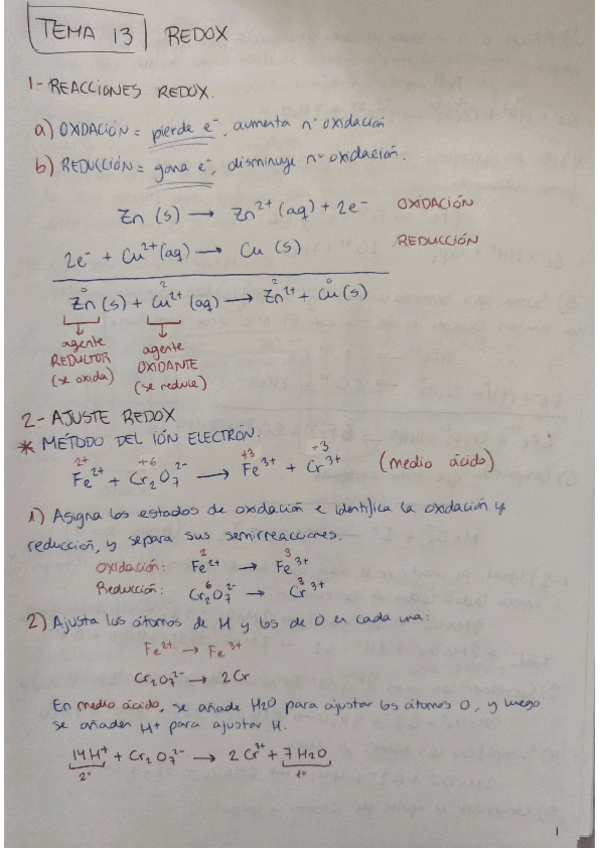 TEMA 13 REDOX
1- REACCIONES REDOX.
a) OXIDACIÓN = pierde e⁻, aumenta nº oxidación
b) REDUCCIÓN = gana e⁻, disminuye nº oxidación.
Zn (s) → Zn²⁺ (aq) + 2e⁻ OXIDACIÓN
2e⁻ + Cu²⁺ (aq) → Cu (s) REDUCCIÓN
0 2 2 0
Zn (s) + Cu²⁺ (aq) → Zn²⁺ + Cu (s)
agente agente
REDUCTOR OXIDANTE
(se oxida) (se reduce)
2- AJUSTE REDOX
* MÉTODO DEL IÓN ELECTRÓN.
2+ +6 +3 +3
Fe²⁺ + Cr₂O₇²⁻ → Fe³⁺ + Cr³⁺ (medio ácido)
1) Asigna los estados de oxidación e identifica la oxidación y
reducción, y separa sus semirreacciones.
2 3
Oxidación: Fe²⁺ → Fe³⁺
6 3
Reducción: Cr₂O₇²⁻ → Cr³⁺
2) Ajusta los átomos de H y los de O en cada una:
Fe²⁺ → Fe³⁺
Cr₂O₇²⁻ → 2Cr
En medio ácido, se añade H₂O para ajustar los átomos O, y luego
se añaden H+ para ajustar H.
14H⁺ + Cr₂O₇²⁻ → 2Cr³⁺ + 7H₂O
2º 1º
1